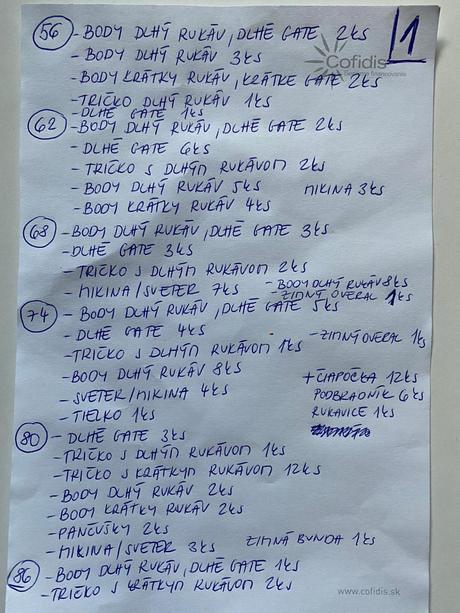 56 - BODY DLHÝ RUKÁV, DLHÉ GATE 2KS
1
Cofidis
- BODY DLHÝ RUKÁV 3KS
- BODY KRÁTKY RUKÁV, KRÁTKE GATE 2KS
- TRIČKO DLHÝ RUKÁV 1KS
- DLHÉ GATE 1KS
62 - BODY DLHÝ RUKÁV, DLHÉ GATE 2KS
- DLHÉ GATE 6KS
- TRIČKO S DLHÝM RUKÁVOM 2KS
- BODY DLHÝ RUKÁV 5KS MIKINA 3KS
- BODY KRÁTKY RUKÁV 4KS
68 - BODY DLHÝ RUKÁV, DLHÉ GATE 3KS
- DLHÉ GATE 3KS
- TRIČKO S DLHÝM RUKÁVOM 2KS
- MIKINA/SVETER 7KS - BODY DLHÝ RUKÁV 8KS
- ZIMNÝ OVERAL 1KS
74 - BODY DLHÝ RUKÁV, DLHÉ GATE 5KS
- DLHÉ GATE 4KS - ZIMNÝ OVERAL 1KS
- TRIČKO S DLHÝM RUKÁVOM 1KS
- BODY DLHÝ RUKÁV 8KS + ČIAPOČKA 12KS
- SVETER/MIKINA 4KS PODBRADNÍK 6KS
- TIELKO 1KS RUKAVICE 1KS
80 - DLHÉ GATE 3KS
- TRIČKO S DLHÝM RUKÁVOM 1KS
- TRIČKO S KRÁTKYM RUKÁVOM 12KS
- BODY DLHÝ RUKÁV 2KS
- BODY KRÁTKY RUKÁV 2KS
- PANČUŠKY 2KS
- MIKINA/SVETER 3KS ZIMNÁ BUNDA 1KS
86 - BODY DLHÝ RUKÁV, DLHÉ GATE 1KS
- TRIČKO S KRÁTKYM RUKÁVOM 2KS
www.cofidis.sk